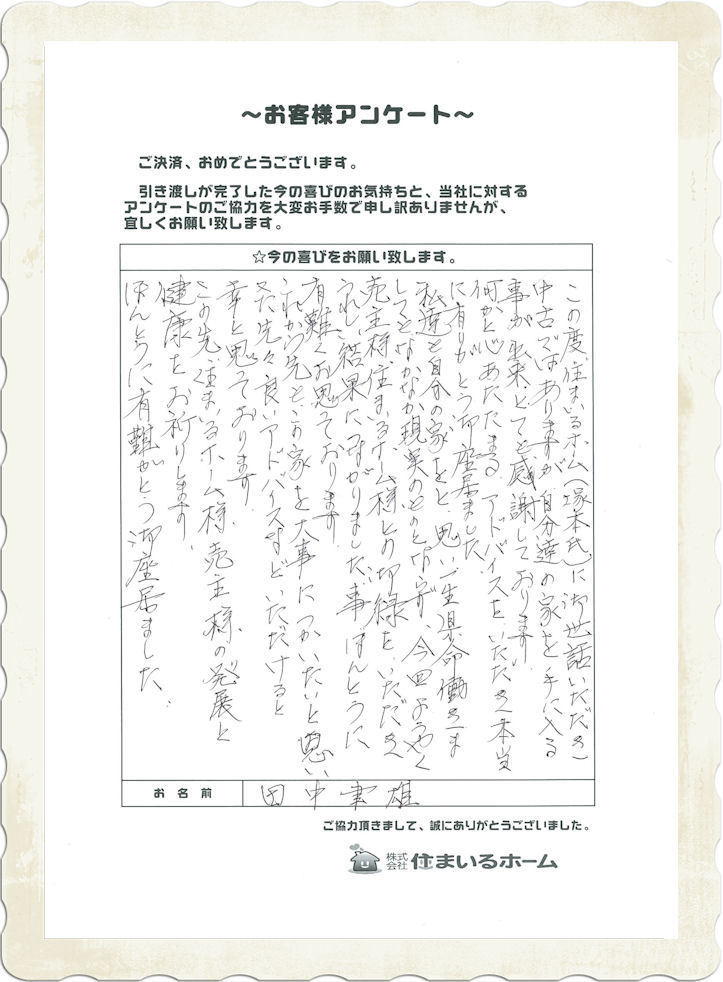 ～お客様アンケート～
ご決済、おめでとうございます。
引き渡しが完了した今の喜びのお気持ちと、当社に対する
アンケートのご協力を大変お手数で申し訳ありませんが、
宜しくお願い致します。
☆今の喜びをお願い致します。
この度、住まいるホーム(塚本氏)に御世話いただき
中古ではありますが、自分達の家を手に入る
事が出来とても感謝しております。
何かと心あたたまるアドバイスをいただき本当
に有りがとう御座居ました。
私達も自分の家をと思い一生県命働きま
してもなかなか現実のものとならず、今回ようやく
売主様住まいるホーム様との御縁をいただき
うれしい結果につながりました事ほんとうに
有難くお思ております
これから先もこの家を大事につかいたいと思い
また先々良いアドバイスなどいただけると
幸と思ております。
この先、住まいるホーム様、売主様の発展と
健康をお祈りします。
ほんとうに有難がとう御座居ました。
お名前
田中 雄
ご協力頂きまして、誠にありがとうございました。
株式会社 住まいるホーム